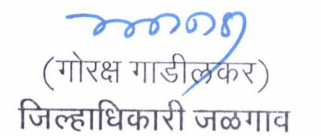 (गोरक्ष गाडीलकर)
जिल्हाधिकारी जळगाव